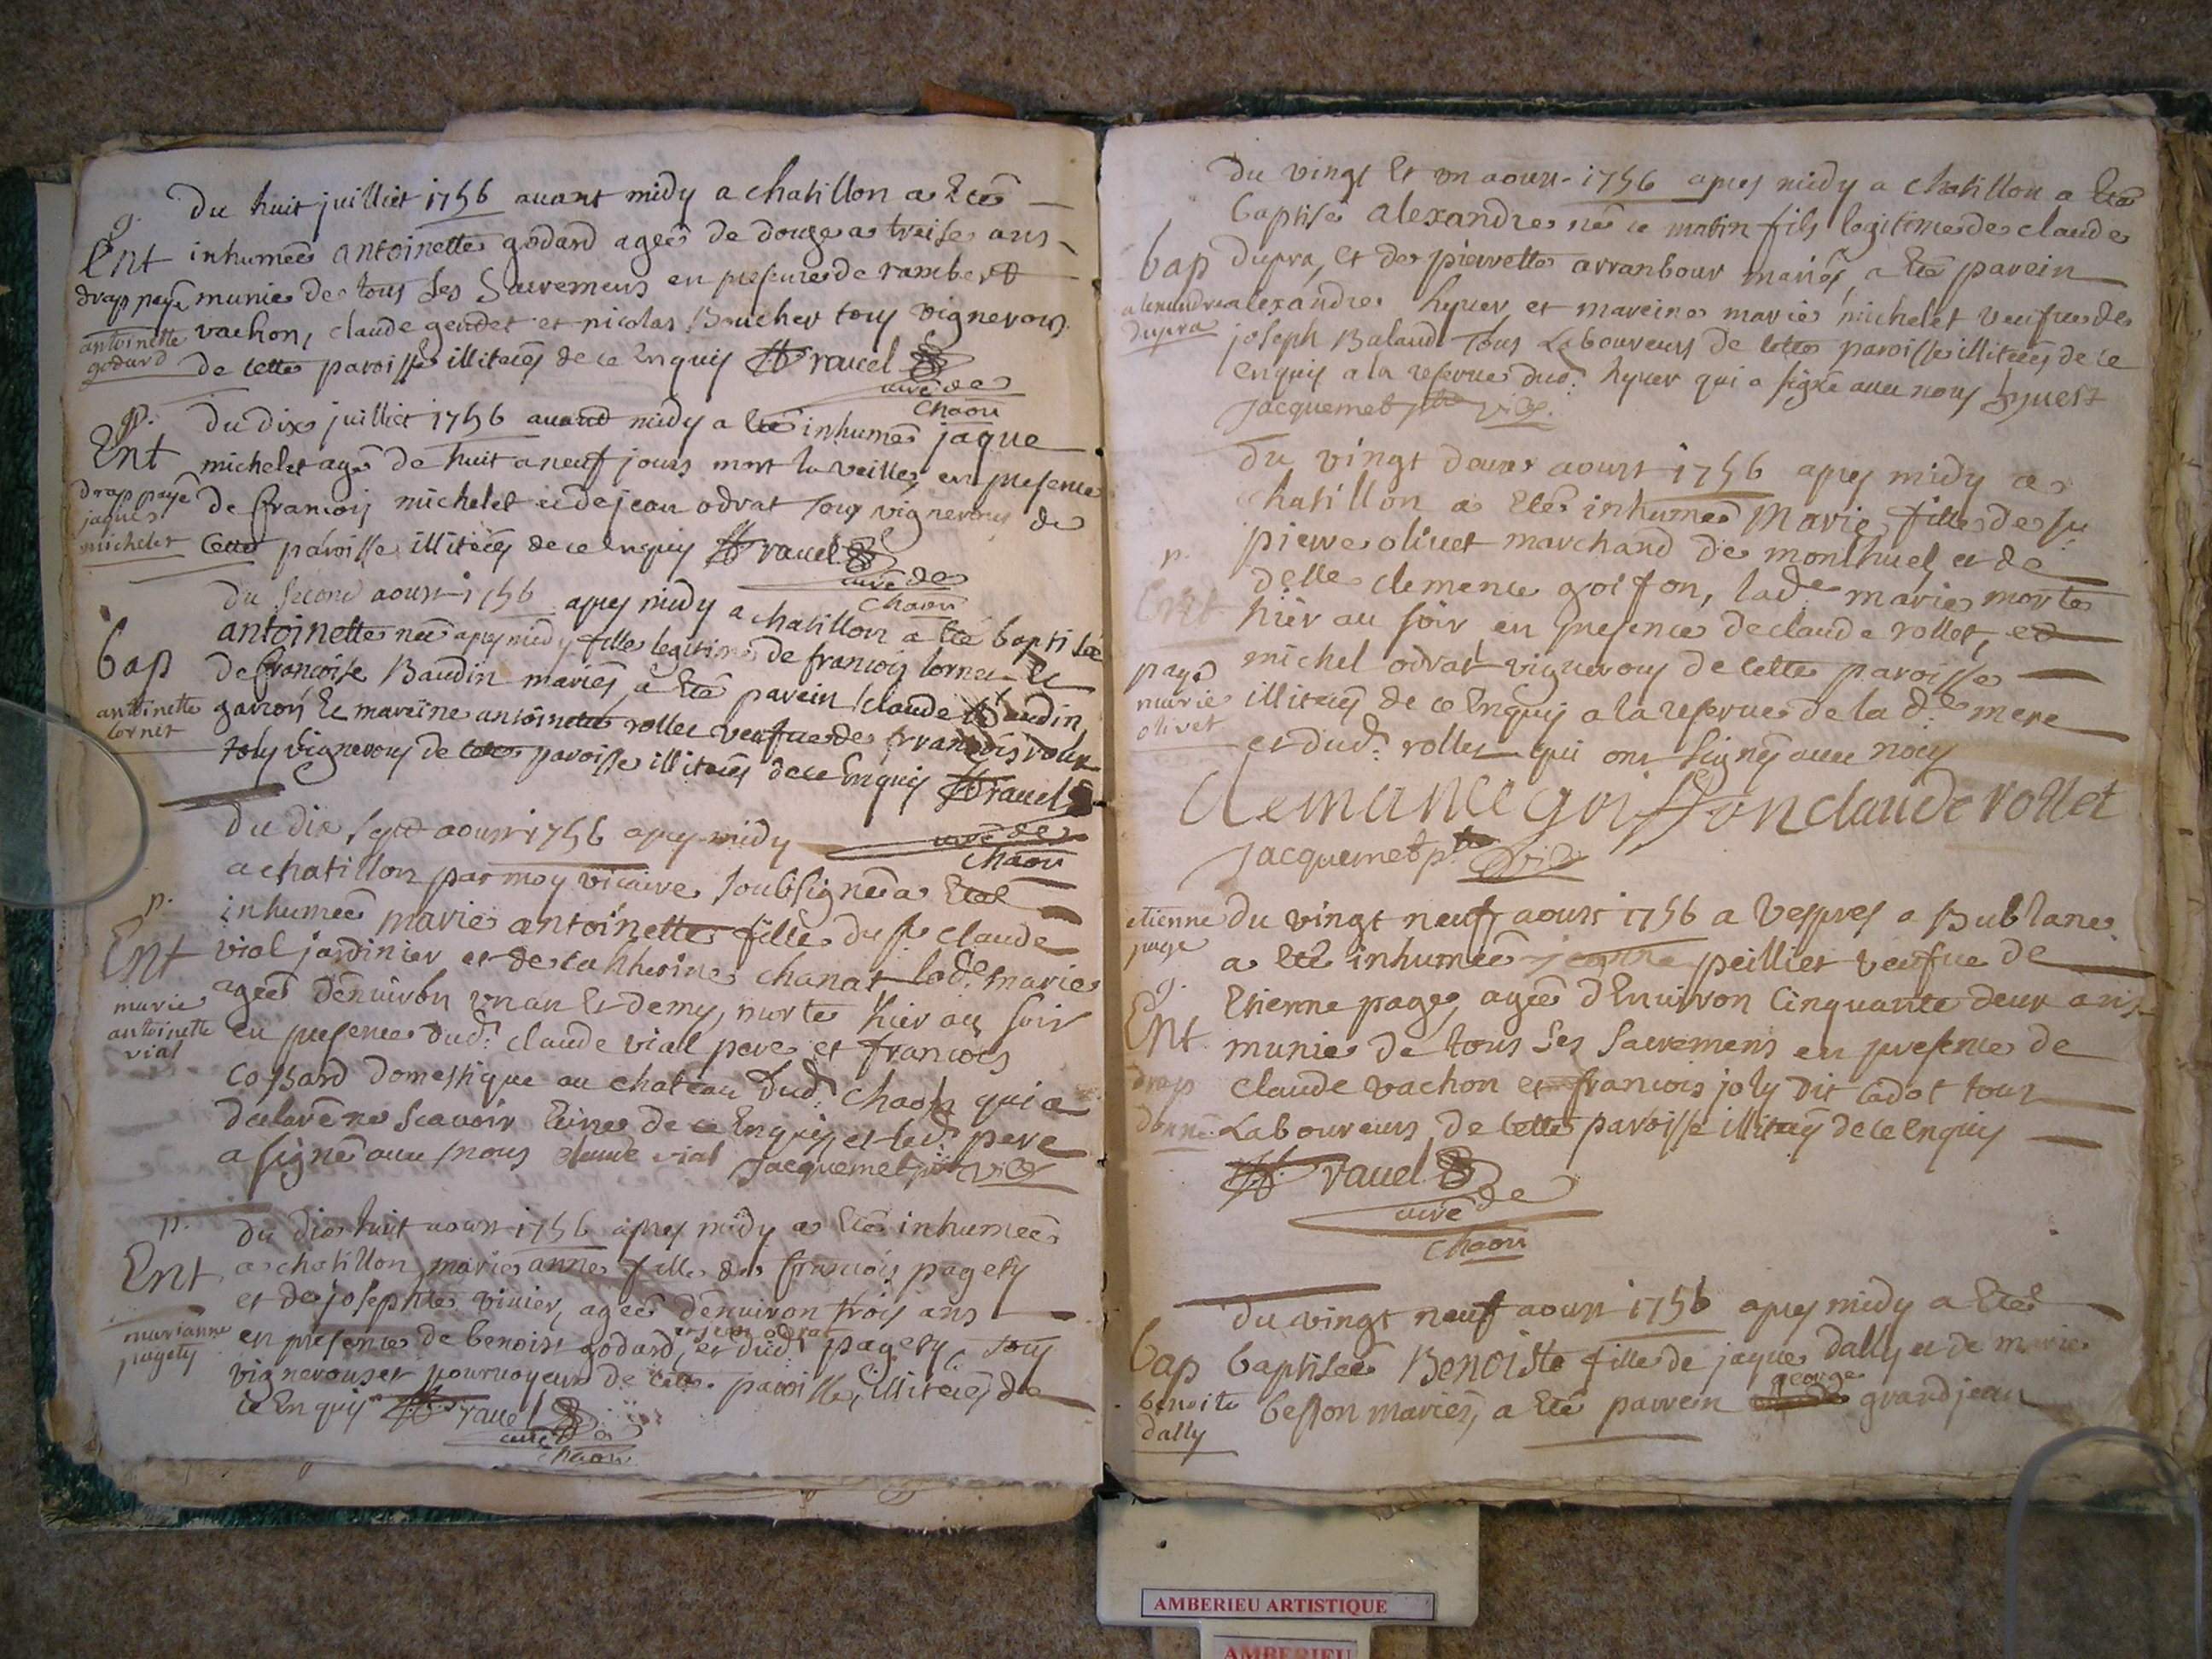 du huit juilliet 1756 auant midy a chatillon a Eté
g.
Ent
inhumeé antoinette godard ageé de douze a treise ans
drap payé
munie de tous Ses Sacremens en presence de rambert
antoinette godard
vachon, claude gendet et nicolas Boucher tous vignerons
de cette paroisse illiterés de ce Enquis rauel
curé de
chaon
du dix juilliet 1756 auant midy a eté inhumé jaque
Ent
michelet agé de huit a neuf jours mort la veille, en presence
drap payé
jaques
michelet
de francois michelet et de jean odrat tous vignerons de
Cette paroisse illiterés de ce Enquis rauel
curé de
chaon
du second aoust 1756 apres midy a chatillon a eté baptisée
bap
antoinette neé apres midy fille legitime de francois lornet Et
antoinette
lornet
de francoise Baudin mariés, a Eté parein claude Baudin
garcon Et mareine antoinette rollet veufue de francois
tous vignerons de cette paroisse illiterés de ce Enquis rauel
curé de
chaon
du dix sept aoust 1756 apres midy
a chatillon par moy vicaire soubsigné a Eté
p.
Ent
marie
antoinette
vial
inhumeé marie antoinette fille du sr claude
vial jardinier et de catherine chanat lade marie
ageé denuiron vn an Et demy, morte hier au soir
en presence dud. claude vial pere et francois
Cossard domestique au chateau dud. chaon qui a
declaré ne scauoir Ecrire de ce Enquis, et led. pere
a signé auec nous claude vial Jacquemet ptre vic
p.
du dix huit aoust 1756 apres midy a Eté inhumeé
Ent
a chatillon marie anne fille de francois pagety
marianne
pagety
et de josephte viuier, ageé denuiron trois ans
en presence de benoist godard, et jean odrat et dud. pagety tous
vignerons et pouruoyeur de cette paroisse, illiterés de
ce Enquis rauel
curé de
chaon
du vingt Et vn aoust 1756 apres midy a chatillon a Eté
baptisé alexandre né ce matin fils legitime de claude
bap
alexandre
dupra
dupra, et de pierrette arranbour mariés, a Eté parein
alexandre hyuer, et mareine marie michelet veufue de
joseph Baland Tous Laboureurs de cette paroisse illiterés de ce
enquis a la reserue dud. hyuer qui a signé auec nous hyuert
Jacquemet ptre vic.
du vingt deux aoust 1756 apres midy a
chatillon a Eté inhumeé Marie fille de fu
p.
Ent
payé
marie
olivet
pierre oliuet marchand de monlhuel et de
delle clemence goiffon, lade marie morte
hier au soir, en presence de claude rollet, et
michel odrat vignerons de cette paroisse
illiterés de ce Enquis a la reserue de la de mere
et dud. rollet qui ont signés auec nous
Clemance goiffon claude rollet
Jacquemet ptre vic
etienne
page
du vingt neuf aoust 1756 a vespres a Bublane
a Eté inhumeé jeanne peilliet veufue de
g.
Ent
drap
donné
Etienne page, ageé d'Enuiron Cinquante deux ans
munie de tous Ses Sacremens en presence de
claude vachon et francois joly dit cadot tous
Laboureurs de cette paroisse illiterés de ce Enquis
rauel
curé de
chaon
du vingt neuf aoust 1756 apres midy a Eté
bap
benoite
dally
baptiseé Benoiste fille de jaque dally et de marie
besson mariés, a Eté parrein george grandjean
AMBERIEU ARTISTIQUE
AMBERIEU